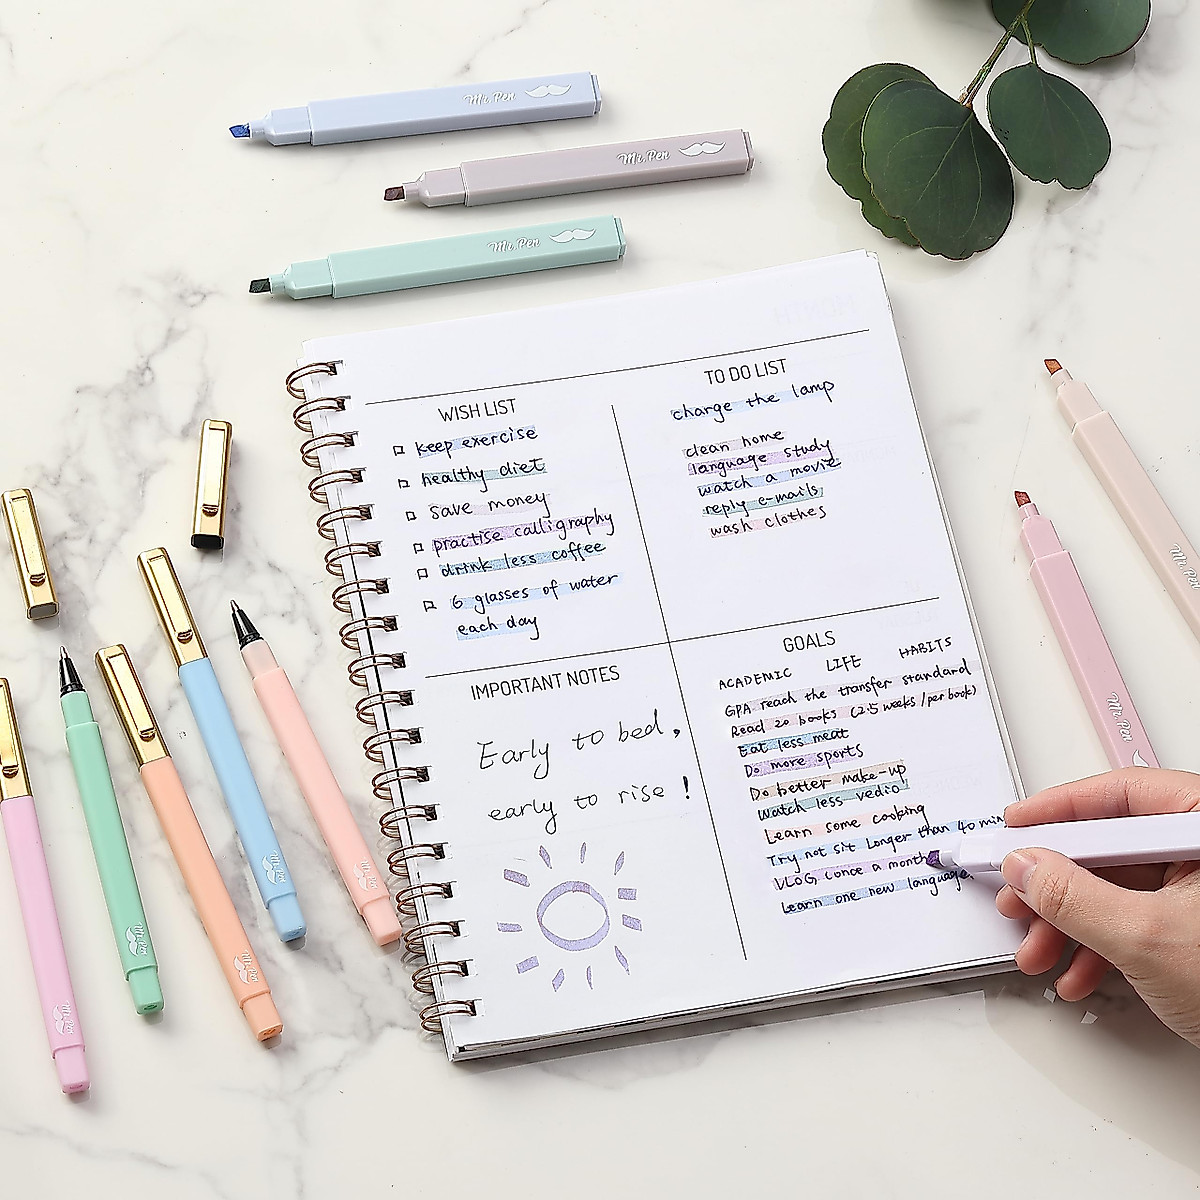 Mr. Pen
Mr. Pen
Mr. Pen
WISH LIST
keep exercise
healthy diet
save money
practise calligraphy
drink less coffee
6 glasses of water
each day
TO DO LIST
charge the lamp
clean home
language study
watch a movie
reply e-mails
wash clothes
IMPORTANT NOTES
Early to bed,
early to rise !
GOALS
ACADEMIC LIFE HABITS
GPA reach the transfer standard
Read 20 books (2.5 weeks/per book)
Eat less meat
Do more sports
Do better make-up
Watch less vedio
Learn some cooking
Try not sit longer than 40 min
VLOG (once a month
Learn one new language
Mr. Pen
Mr. Pen
Mr. Pen
Mr. Pen
Mr. Pen
Mr. Pen
Mr. Pen